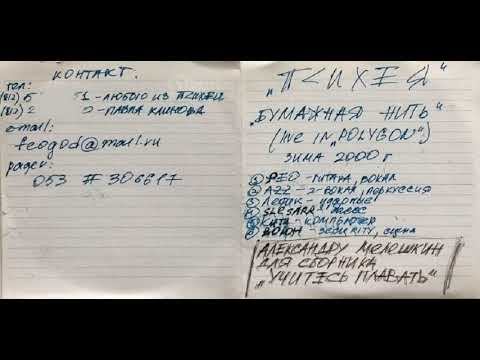 КОНТАКТ.
тел:
(812) 5 51 - ЛЮБОГО ИЗ ПСИХЕИ
(812) 2 - ПАВЛА КЛИНОВА
e-mail:
feogod@mail.ru
pager:
053 # 306617
„ПСИХЕЯ“
„БУМАЖНАЯ НИТЬ“
(live IN „POLYGON“)
ЗИМА 2000 г
① FEO - гитара, вокал
② AZZ - 2-вокал, перкуссия
③ Лефак - ударные
④ SLESARR - басс
⑤ - компьютер
⑥ - security, сцена
АЛЕКСАНДРУ МЕЛЕШКИН
ДЛЯ СБОРНИКА
„УЧИТЕСЬ ПЛАВАТЬ“